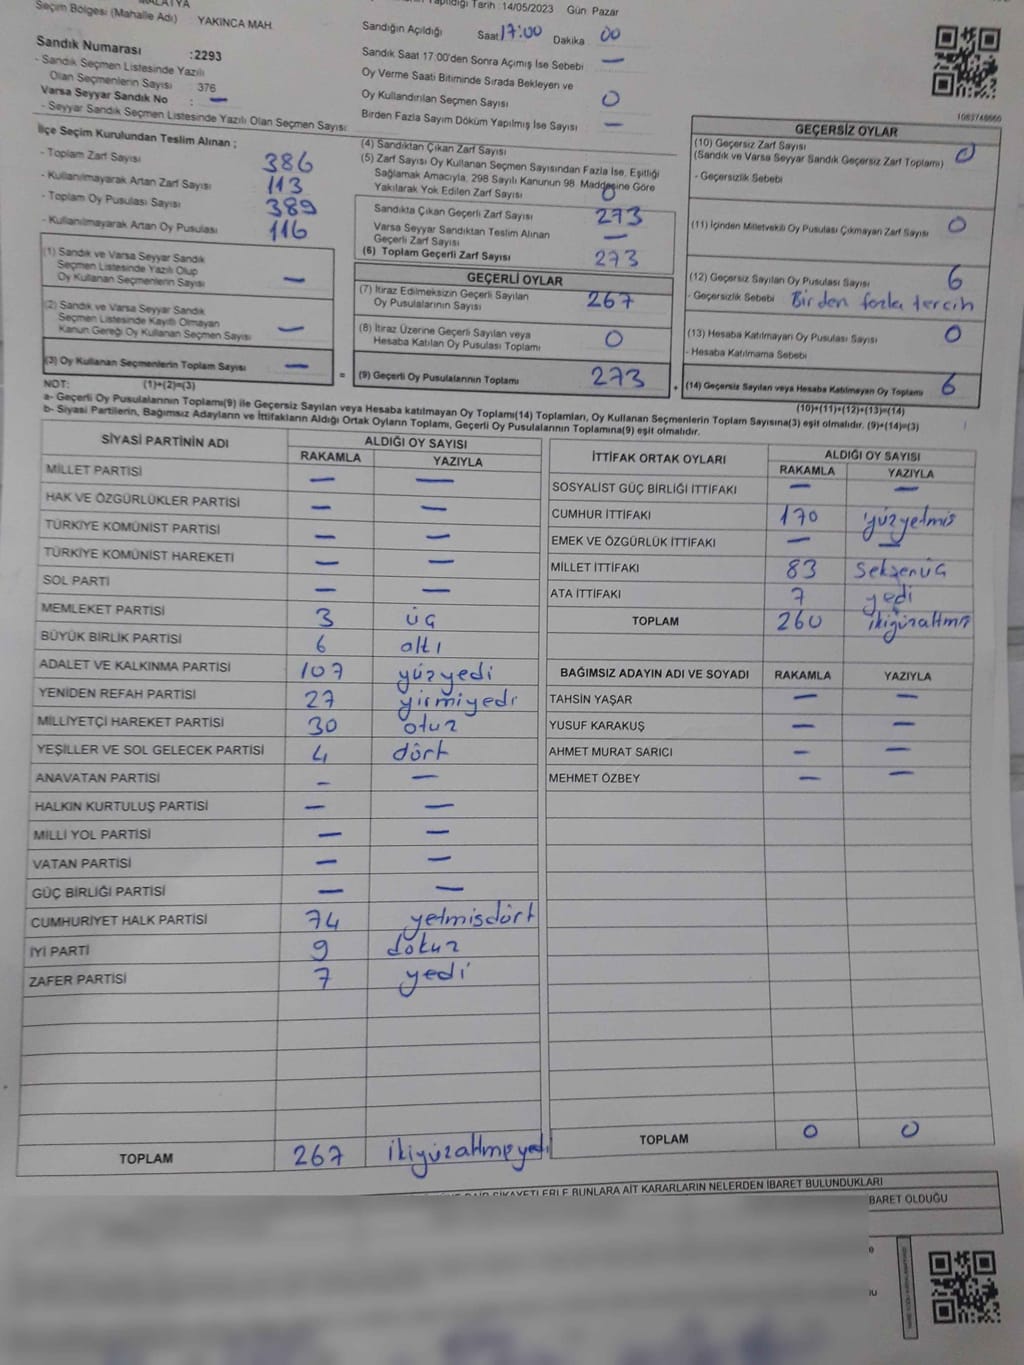 MALATYA
Seçim Bölgesi (Mahalle Adı) YAKINCA MAH.
Sandık Numarası :2293
- Sandık Seçmen Listesinde Yazılı
Olan Seçmenlerin Sayısı 376
Varsa Seyyar Sandık No : —
- Seyyar Sandık Seçmen Listesinde Yazılı Olan Seçmen Sayısı:
Tarih :14/05/2023 Gün Pazar
Sandığın Açıldığı Saat 17:00 Dakika 00
Sandık Saat 17.00'den Sonra Açımış İse Sebebi —
Oy Verme Saati Bitiminde Sırada Bekleyen ve
Oy Kullandırılan Seçmen Sayısı 0
Birden Fazla Sayım Döküm Yapılmış İse Sayısı —
1083748666
İlçe Seçim Kurulundan Teslim Alınan ;
- Toplam Zarf Sayısı 386
- Kullanılmayarak Artan Zarf Sayısı 113
- Toplam Oy Pusulası Sayısı 389
- Kullanılmayarak Artan Oy Pusulası 116
(1) Sandık ve Varsa Seyyar Sandık
Seçmen Listesinde Yazılı Olup
Oy Kullanan Seçmenlerin Sayısı —
(2) Sandık ve Varsa Seyyar Sandık
Seçmen Listesinde Kayıtlı Olmayan
Kanun Gereği Oy Kullanan Seçmen Sayısı —
(3) Oy Kullanan Seçmenlerin Toplam Sayısı —
(4) Sandıktan Çıkan Zarf Sayısı
(5) Zarf Sayısı Oy Kullanan Seçmen Sayısından Fazla İse, Eşitliği
Sağlamak Amacıyla, 298 Sayılı Kanunun 98. Maddesine Göre
Yakılarak Yok Edilen Zarf Sayısı 0
Sandıkta Çıkan Geçerli Zarf Sayısı 273
Varsa Seyyar Sandıktan Teslim Alınan
Geçerli Zarf Sayısı —
(6) Toplam Geçerli Zarf Sayısı 273
GEÇERLİ OYLAR
(7) İtiraz Edilmeksizin Geçerli Sayılan
Oy Pusulalarının Sayısı 267
(8) İtiraz Üzerine Geçerli Sayılan veya
Hesaba Katılan Oy Pusulası Toplamı 0
= (9) Geçerli Oy Pusulalarının Toplamı 273 +
GEÇERSİZ OYLAR
(10) Geçersiz Zarf Sayısı 0
(Sandık ve Varsa Seyyar Sandık Geçersiz Zarf Toplamı)
- Geçersizlik Sebebi
(11) İçinden Milletvekili Oy Pusulası Çıkmayan Zarf Sayısı 0
(12) Geçersiz Sayılan Oy Pusulası Sayısı 6
- Geçersizlik Sebebi Birden fazla tercih
(13) Hesaba Katılmayan Oy Pusulası Sayısı 0
- Hesaba Katılmama Sebebi
(14) Geçersiz Sayılan veya Hesaba Katılmayan Oy Toplamı 6
NOT: (1)+(2)=(3) (10)+(11)+(12)+(13)=(14)
a- Geçerli Oy Pusulalarının Toplamı(9) ile Geçersiz Sayılan veya Hesaba katılmayan Oy Toplamı(14) Toplamları, Oy Kullanan Seçmenlerin Toplam Sayısına(3) eşit olmalıdır. (9)+(14)=(3)
b- Siyasi Partilerin, Bağımsız Adayların ve İttifakların Aldığı Ortak Oyların Toplamı, Geçerli Oy Pusulalarının Toplamına(9) eşit olmalıdır.
SİYASİ PARTİNİN ADI ALDIĞI OY SAYISI
RAKAMLA YAZIYLA
MİLLET PARTİSİ — —
HAK VE ÖZGÜRLÜKLER PARTİSİ — —
TÜRKİYE KOMÜNİST PARTİSİ — —
TÜRKİYE KOMÜNİST HAREKETİ — —
SOL PARTİ — —
MEMLEKET PARTİSİ 3 üç
BÜYÜK BİRLİK PARTİSİ 6 altı
ADALET VE KALKINMA PARTİSİ 107 yüzyedi
YENİDEN REFAH PARTİSİ 27 yirmiyedi
MİLLİYETÇİ HAREKET PARTİSİ 30 otuz
YEŞİLLER VE SOL GELECEK PARTİSİ 4 dört
ANAVATAN PARTİSİ — —
HALKIN KURTULUŞ PARTİSİ — —
MİLLİ YOL PARTİSİ — —
VATAN PARTİSİ — —
GÜÇ BİRLİĞİ PARTİSİ — —
CUMHURİYET HALK PARTİSİ 74 yetmisdört
İYİ PARTİ 9 dokuz
ZAFER PARTİSİ 7 yedi
TOPLAM 267 ikiyüzaltmışyedi
İTTİFAK ORTAK OYLARI ALDIĞI OY SAYISI
RAKAMLA YAZIYLA
SOSYALİST GÜÇ BİRLİĞİ İTTİFAKI — —
CUMHUR İTTİFAKI 170 yüzyetmiş
EMEK VE ÖZGÜRLÜK İTTİFAKI — —
MİLLET İTTİFAKI 83 seksenüç
ATA İTTİFAKI 7 yedi
TOPLAM 260 ikiyüzaltmış
BAĞIMSIZ ADAYIN ADI VE SOYADI RAKAMLA YAZIYLA
TAHSİN YAŞAR — —
YUSUF KARAKUŞ — —
AHMET MURAT SARICI — —
MEHMET ÖZBEY — —
TOPLAM 0 0
ŞİKAYETLERLE BUNLARA AİT KARARLARIN NELERDEN İBARET BULUNDUKLARI
BARET OLDUĞU